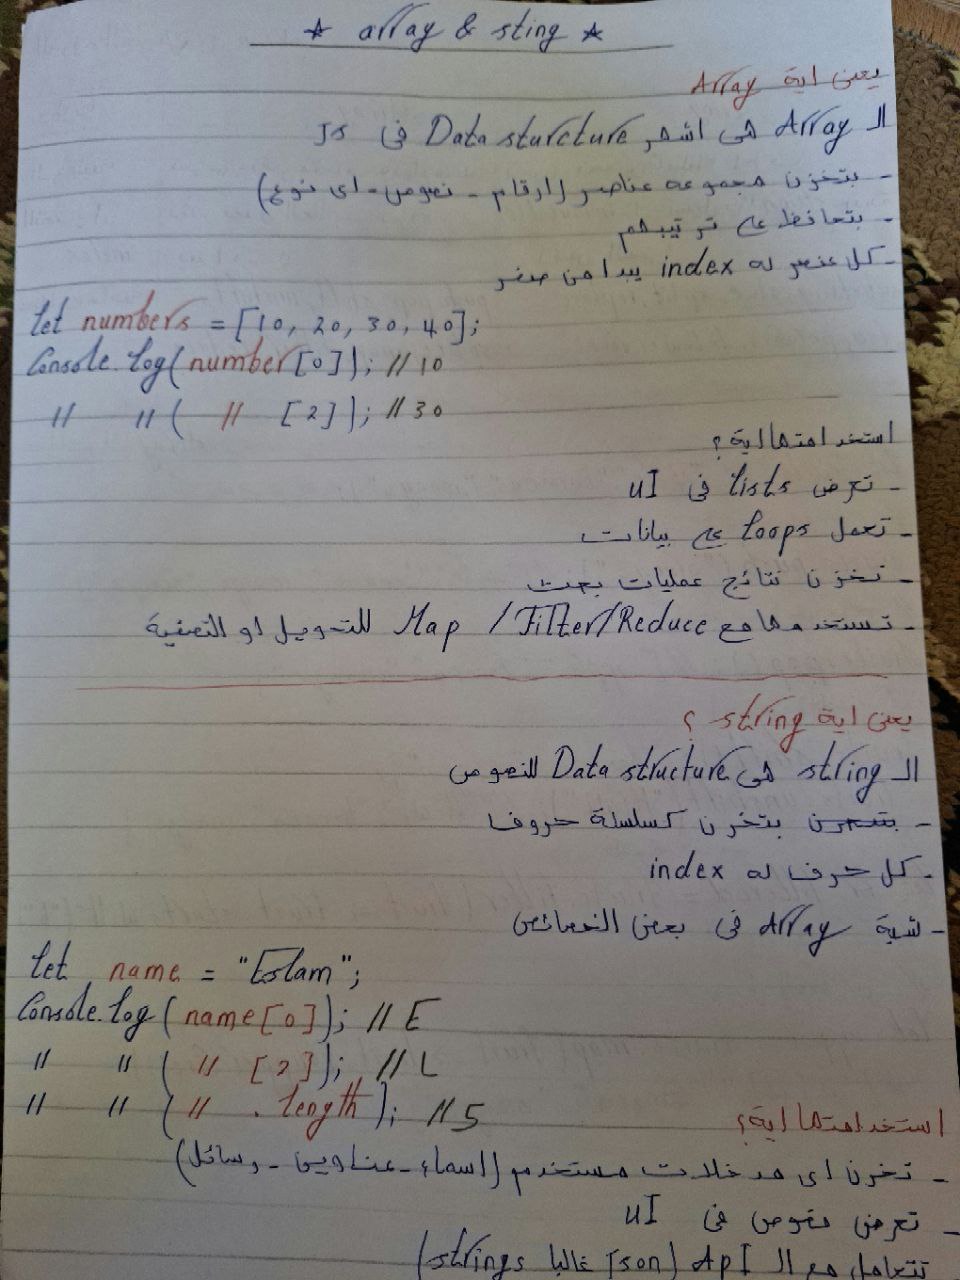 ★ array & sting ★
يعنى اية Array
الـ Array هى اشهر Data sturcture فى JS
- بتخزن مجموعه عناصر (ارقام - نصوص - اى نوع)
- بتحافظ على ترتيبهم
- كل عنصر له index يبدا من صفر
let numbers = [10, 20, 30, 40];
Console.log(number[0]); // 10
// // ( // [2]); // 30
استخدامتها اية؟
- تعرض lists فى UI
- تعمل loops على بيانات
- تخزن نتائج عمليات بحث
- تستخدمها مع Map / Filter/Reduce للتحويل او التصفية
يعنى اية string ؟
الـ string هى Data structure للنصوص
- بتخزن بتخزن كسلسلة حروف
- كل حرف له index
- شبة Array فى بعض الخصائص
let name = "Eslam";
Console.log(name[0]); // E
// // ( // [2]); // L
// // ( // .length); // 5
استخدامتها اية؟
- تخزن اى مدخلات مستخدم (اسماء - عناوين - رسائل)
- تعرض نصوص فى UI
تتعامل مع الـ API (Json غالبا strings)